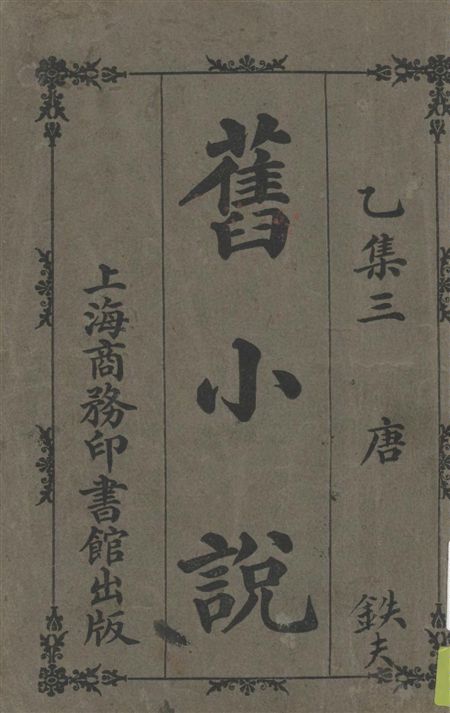 乙集三 唐
鉄夫
舊小說
上海商務印書館出版